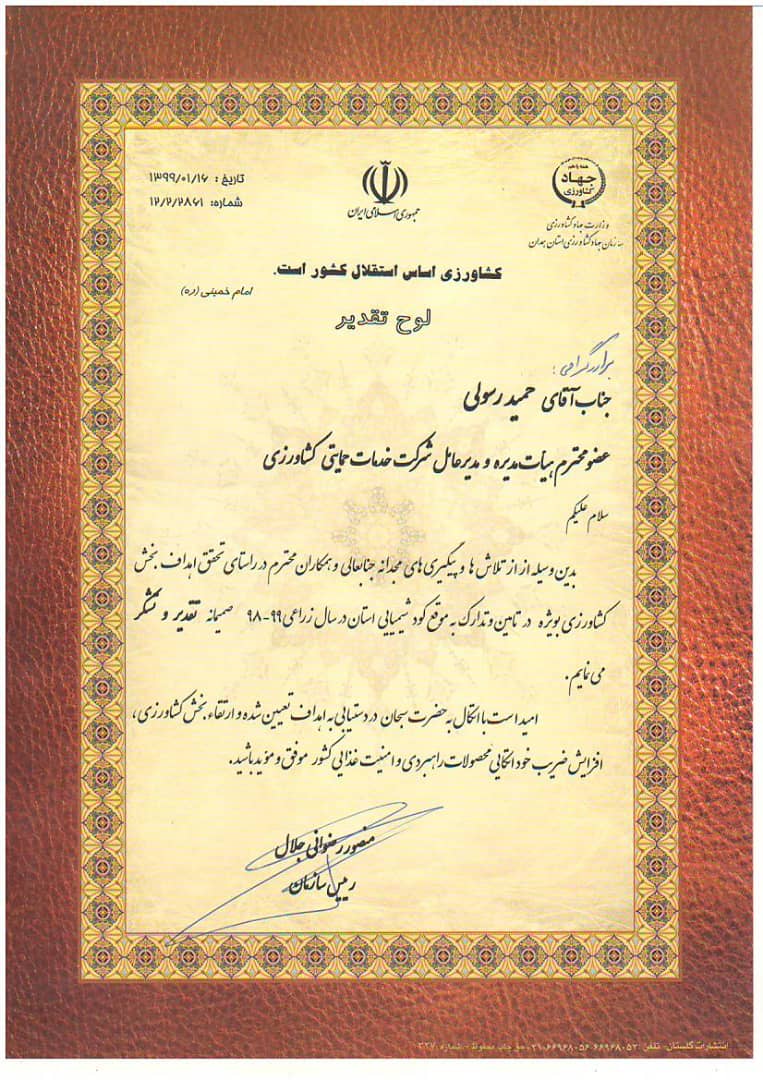 همه با هم
جهاد
کشاورزی
وزارت جهاد کشاورزی
سازمان جهاد کشاورزی استان همدان
جمهوری اسلامی ایران
تاریخ : ۱۳۹۹/۰۱/۱۶
شماره: ۱۲/۲/۲۸۶۱
کشاورزی اساس استقلال کشور است.
امام خمینی (ره)
لوح تقدیر
برادر گرامی :
جناب آقای حمید رسولی
عضو محترم هیات مدیره و مدیرعامل شرکت خدمات حمایتی کشاورزی
سلام علیکم
بدین وسیله از از تلاش ها و پیگیری های مجدانه جنابعالی و همکاران محترم در راستای تحقق اهداف بخش
کشاورزی بویژه در تامین و تدارک به موقع کود شیمیایی استان در سال زراعی ۹۹-۹۸ صمیمانه تقدیر و تشکر
می نمایم.
امید است با اتکال به حضرت سبحان در دستیابی به اهداف تعیین شده و ارتقاء بخش کشاورزی،
افزایش ضریب خود اتکایی محصولات راهبردی و امنیت غذایی کشور موفق و مؤید باشید.
منصور رضوانی جلال
رییس سازمان
انتشارات گلستان- تلفن: ۶۶۹۶۸۰۵۳-۶۶۹۶۸۰۵۶ حق چاپ محفوظ - شماره: ۳۲۷